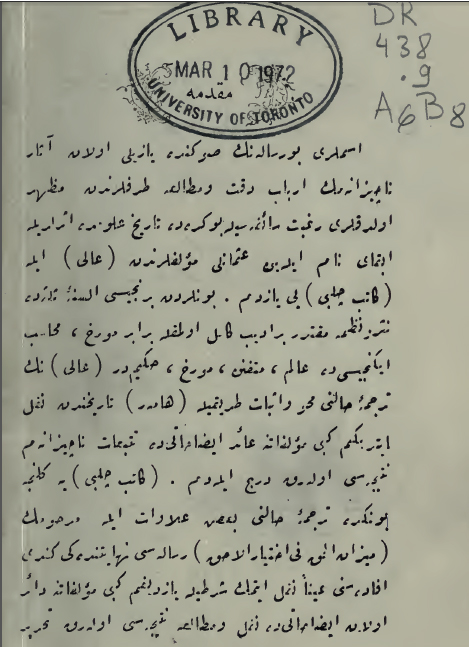 LIBRARY
MAR 10 1972
UNIVERSITY OF TORONTO
DR
438
.9
A6B8
مقدمه
اسملری بو رساله‌نك صوكنده یازیلی اولان آثار
ناچیزانه‌مك ارباب دقت ومطالعه طرفلرندن مظهر
اولدقلری رغبت سائقه‌سیله بوكره‌ده تاریخ علومده اثرلریله
ابقای نام ایدن عثمانلی مؤلفلرندن (عالی) ایله
(كاتب چلبی) یی یازدم . بونلردن برنجیسی السنۀ ثلاثه‌ده
نثر ونظمه مقتدر بر ادیب كامل اولمقله برابر مورخ ، محاسب
ایكنجیسی‌ده عالم ، متفنن ، مورخ ، حكیمدر (عالی) نك
ترجمۀ حالنی محو واثبات طریقیله (هامر) تاریخندن نقل
ایتدیكم كبی مؤلفاتنه عائد ایضاحاتی‌ده تتبعات ناچیزانه‌م
نتیجه‌سی اوله‌رق درج ایله‌دم . (كاتب چلبی) یه كلنجه
بونك‌ده ترجمۀ حالنی بعض علاوات ایله مرحومك
(میزان الحق فی اختیار الاحق) رساله‌سی نهایتنده‌كی كندی
افاده‌سنی عیناً نقل ایتمك شرطیله یازدیغم كبی مؤلفاتنه دائر
اولان ایضاحاتی‌ده نقل ومطالعه نتیجه‌سی اوله‌رق تحریر